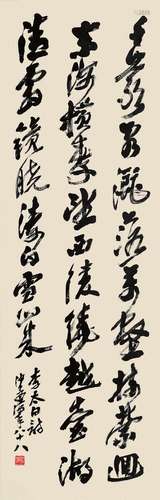 千巖泉灑落萬壑樹縈迴
東海橫秦望西陵繞越臺湖
清霜鏡曉濤白雪山來
李太白詩
沙孟海八十八